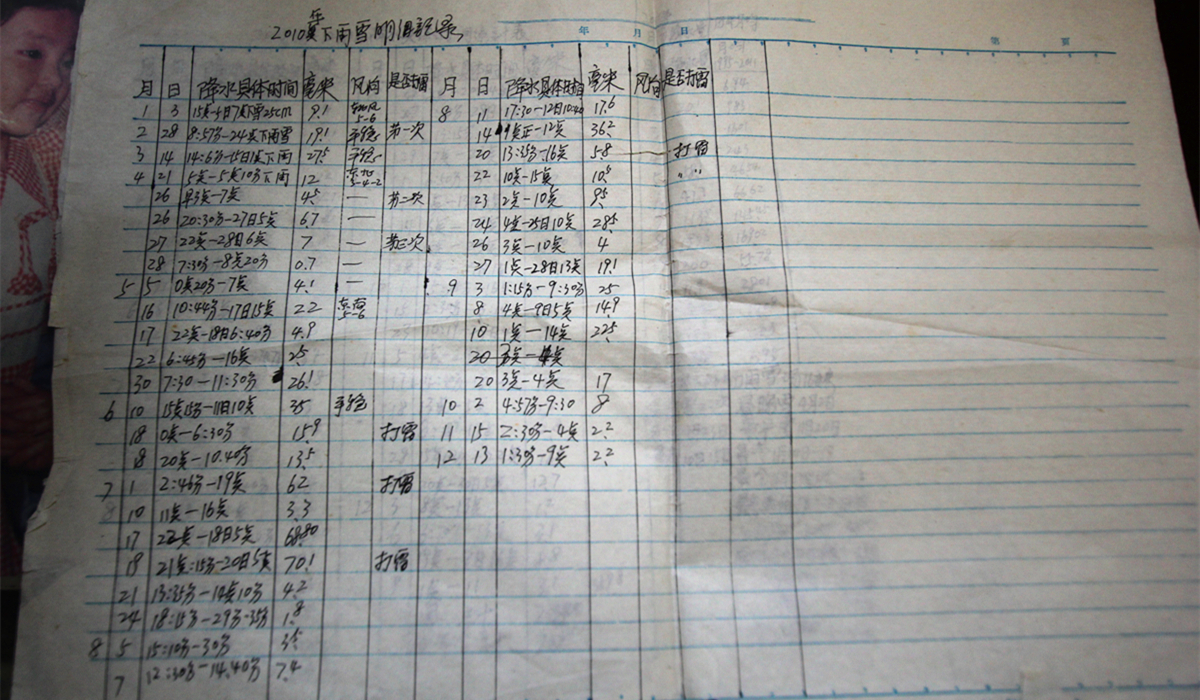 2010年下雨雪明细记录
年 月 日 第 页
月 日 降水具体时间 毫米 风向 是否打雷 月 日 降水具体时间 毫米 风向 是否打雷
1 3 15点-4日7点下雪25cm 9.1 5-6 8 11 17:30-12日10:40 17.6
2 28 8:57分-24点下雨雪 19.1 第一次 14 9点正-12点 36.2
3 14 14:6分-15日1点下雨 27.5 20 13:35分-16点 58 打雷
4 21 5点-5点10分下雨 12 22 10点-15点 10.5 〃
26 早3点-7点 4.5 — 第二次 23 2点-10点 9.5
26 20:30分-27日5点 6.7 — 24 4点-25日10点 28.5
27 22点-28日6点 7 — 第三次 26 3点-10点 4
28 7:30分-8点20分 0.7 — 27 1点-28日13点 19.1
5 5 0点20分-7点 4.1 — 9 3 1:15分-9:30分 25
16 10:44分-17日15点 22 东南 5-6 8 4点-9日5点 14.9
17 22点-18日6:40分 4.9 10 1点-14点 22.5
22 6:45分-16点 2.5 20
30 7:30-11:30分 26.1 20 3点-4点 17
6 10 15点15分-11日10点 35 10 2 4:57分-9:30 8
18 0点-6:30分 15.9 打雷 11 15 2:30分-4点 2.2
18 20点-10.40分 13.5 12 13 1:30分-9点 2.2
7 1 2:46分-19点 62 打雷
10 11点-16点 3.3
17 22点-18日5点 68.80
18 21点:15分-20日5点 70.1 打雷
21 13:35分-14点10分 4.2
24 18:15分-29分-35分 1.8
8 5 15:10分-30分 3.5
7 12:30分-14.40分 7.4